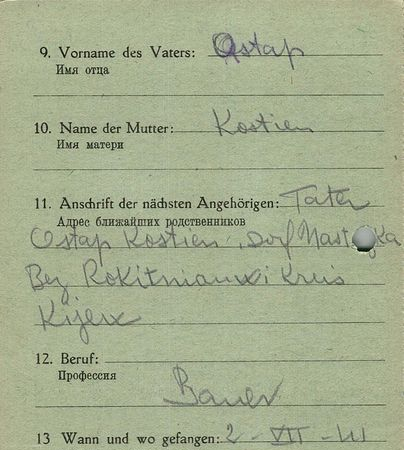 9. Vorname des Vaters: Ostap
Имя отца
10. Name der Mutter: Kostien
Имя матери
11. Anschrift der nächsten Angehörigen: Tater
Адрес ближайших родственников
Ostap Kostien, Dorf
Bez Rokitnianxi Kreis
Kijew
12. Beruf:
Профессия
Bauer
13 Wann und wo gefangen: 2 - VII - 41